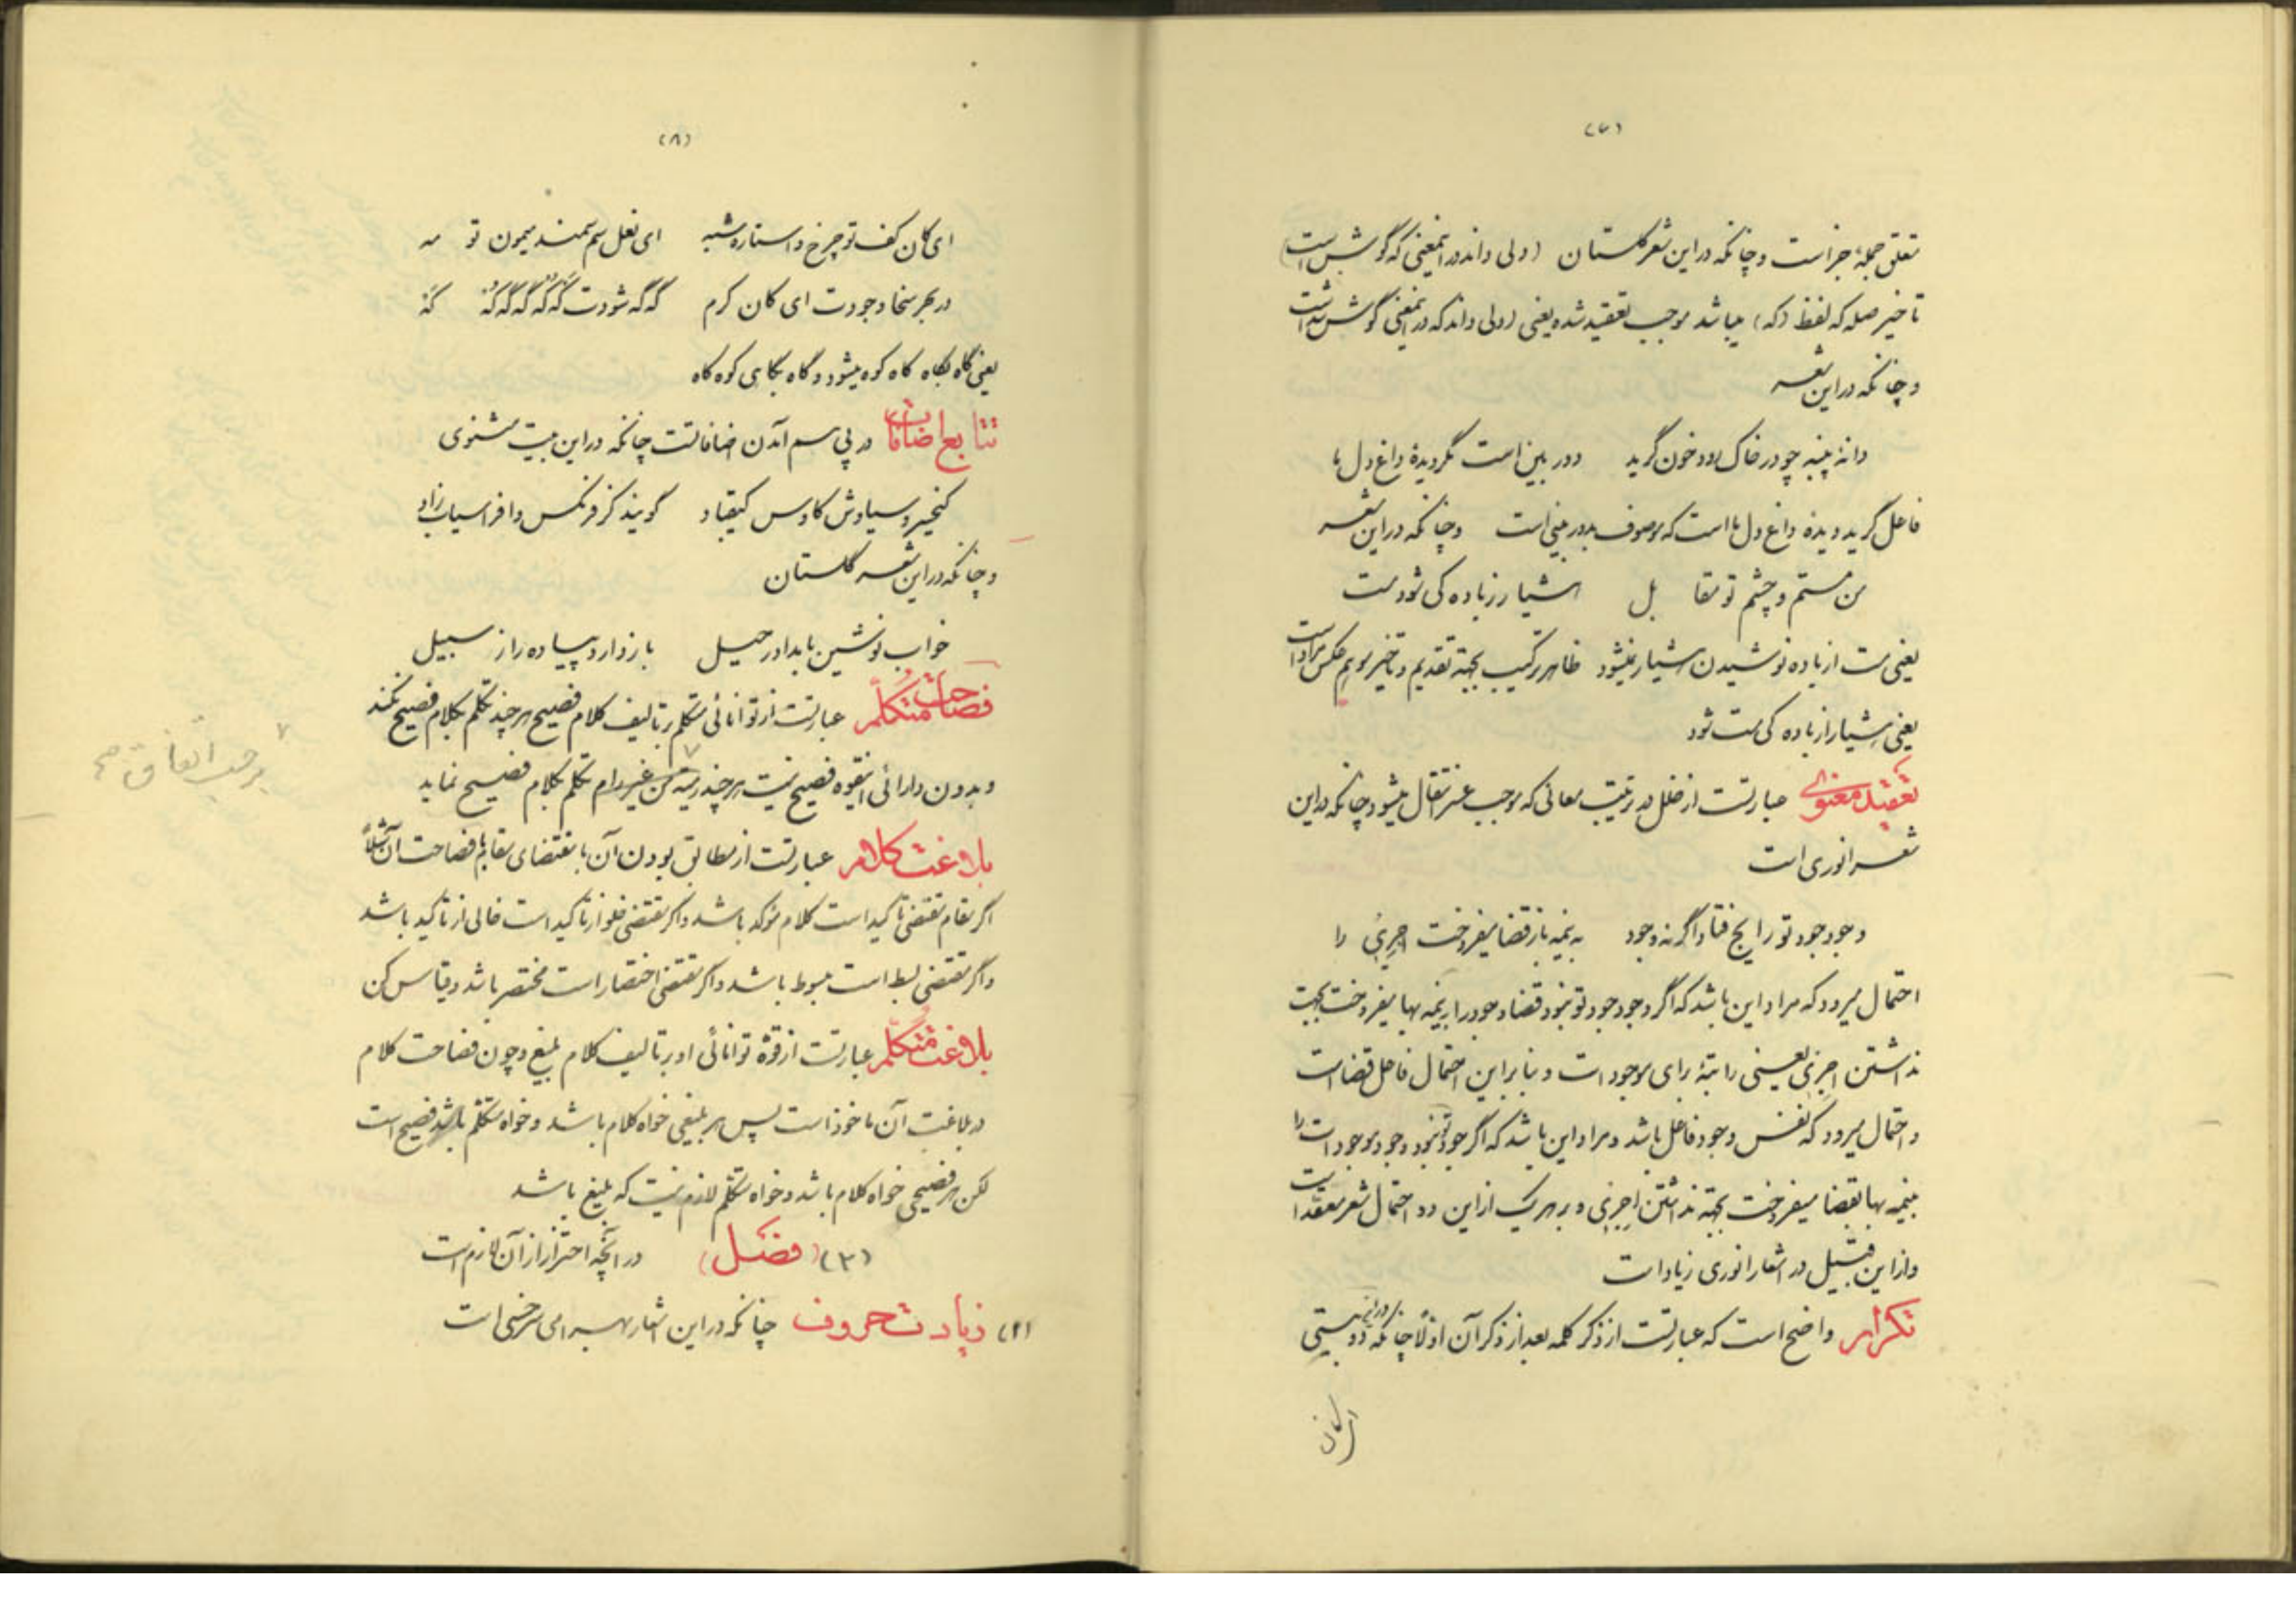 (۷)
متعلق جملهٔ جزاست و چنانکه در این شعر گلستان (ولی داند در اینمعنی که گوش است)
تاخیر صله که لفظ (که) میباشد موجب تعقید شده یعنی (ولی داند که در اینمعنی گوش است
و چنانکه در این شعر
دانهٔ پنبه چو در خاک رود خون گرید دوربین است مگر دیدهٔ داغ دل ما
فاعل گرید دیدهٔ داغ دل ما است که موصوف بدوربینی است و چنانکه در این شعر
من مستم و چشم تو مقابل هشیار ز باده کی شود مست
یعنی مست از باده نوشیدن هشیار نمیشود ظاهر ترکیب بجهة تقدیم و تاخیر موهم عکس مراد است
یعنی هشیار از باده کی مست شود
تعقید معنوی عبارتست از خلل در ترتیب معانی که موجب عسر انتقال میشود چنانکه در این
شعر انوری است
وجود جود تو رایج فتاد اگر نه وجود به نیمه باز قضا میفروخت اجری را
احتمال میرود که مراد این باشد که اگر وجود جود تو نبود قضا وجود را به نیمه بها میفروخت بجهت
نداشتن اجری یعنی راتبهٔ برای موجودات و بنا براین احتمال فاعل قضا است
و احتمال میرود که نفس وجود فاعل باشد و مراد این باشد که اگر جود تو نبود وجود موجودات را
بنیمه بها بقضا میفروخت بجهة نداشتن اجری و بر هر یک از این دو احتمال شعر معقد است
و از این قبیل در اشعار انوری زیاد است
تکرار واضح است که عبارتست از ذکر کلمه بعد از ذکر آن اولا چنانکه در این دو بیتی
(۸)
ای کان کف تو چرخ و استاره شبه ای نعل سم سمند میمون تو مه
در بحر سخا وجودت ای کان کرم گه گه شودت که که و گه گه که که
یعنی گاه بگاه کاه کوه میشود و گاه بگاهی کوه کاه
تتابع اضافات در پی هم آمدن اضافاتست چنانکه در این بیت مثنوی
کیخسرو سیاوش کاوس کیقباد گویند کز فرنگیس و افراسیاب زاد
و چنانکه در این شعر گلستان
خواب نوشین بامداد رحیل باز دارد پیاده را ز سبیل
فصاحت متکلم عبارتست از توانائی متکلم بر تالیف کلام فصیح هر چند تکلم بکلام فصیح نکند
و بدون دارائی اینقوه فصیح نیست هر چند رمیة من غیر رام تکلم بکلام فصیح نماید
بر حسب اتفاق صح
بلاغت کلام عبارتست از مطابق بودن آن با مقتضای مقام با فصاحت آن مثلاً
اگر مقام مقتضی تأکید است کلام مؤکد باشد و اگر مقتضی خلو از تأکید است خالی از تأکید باشد
و اگر مقتضی بسط است مبسوط باشد و اگر مقتضی اختصار است مختصر باشد و قیاس کن
بلاغت متکلم عبارتست از قوهٔ توانائی او بر تالیف کلام بلیغ و چون فصاحت کلام
در بلاغت آن ماخوذ است پس هر بلیغی خواه کلام باشد و خواه متکلم باشد فصیح است
لکن هر فصیحی خواه کلام باشد و خواه متکلم لازم نیست که بلیغ باشد
(۳) (فصل) در آنچه احتراز از آن لازم است
(۲) زیادت حروف چنانکه در این اشعار بهرامی سرخسی است